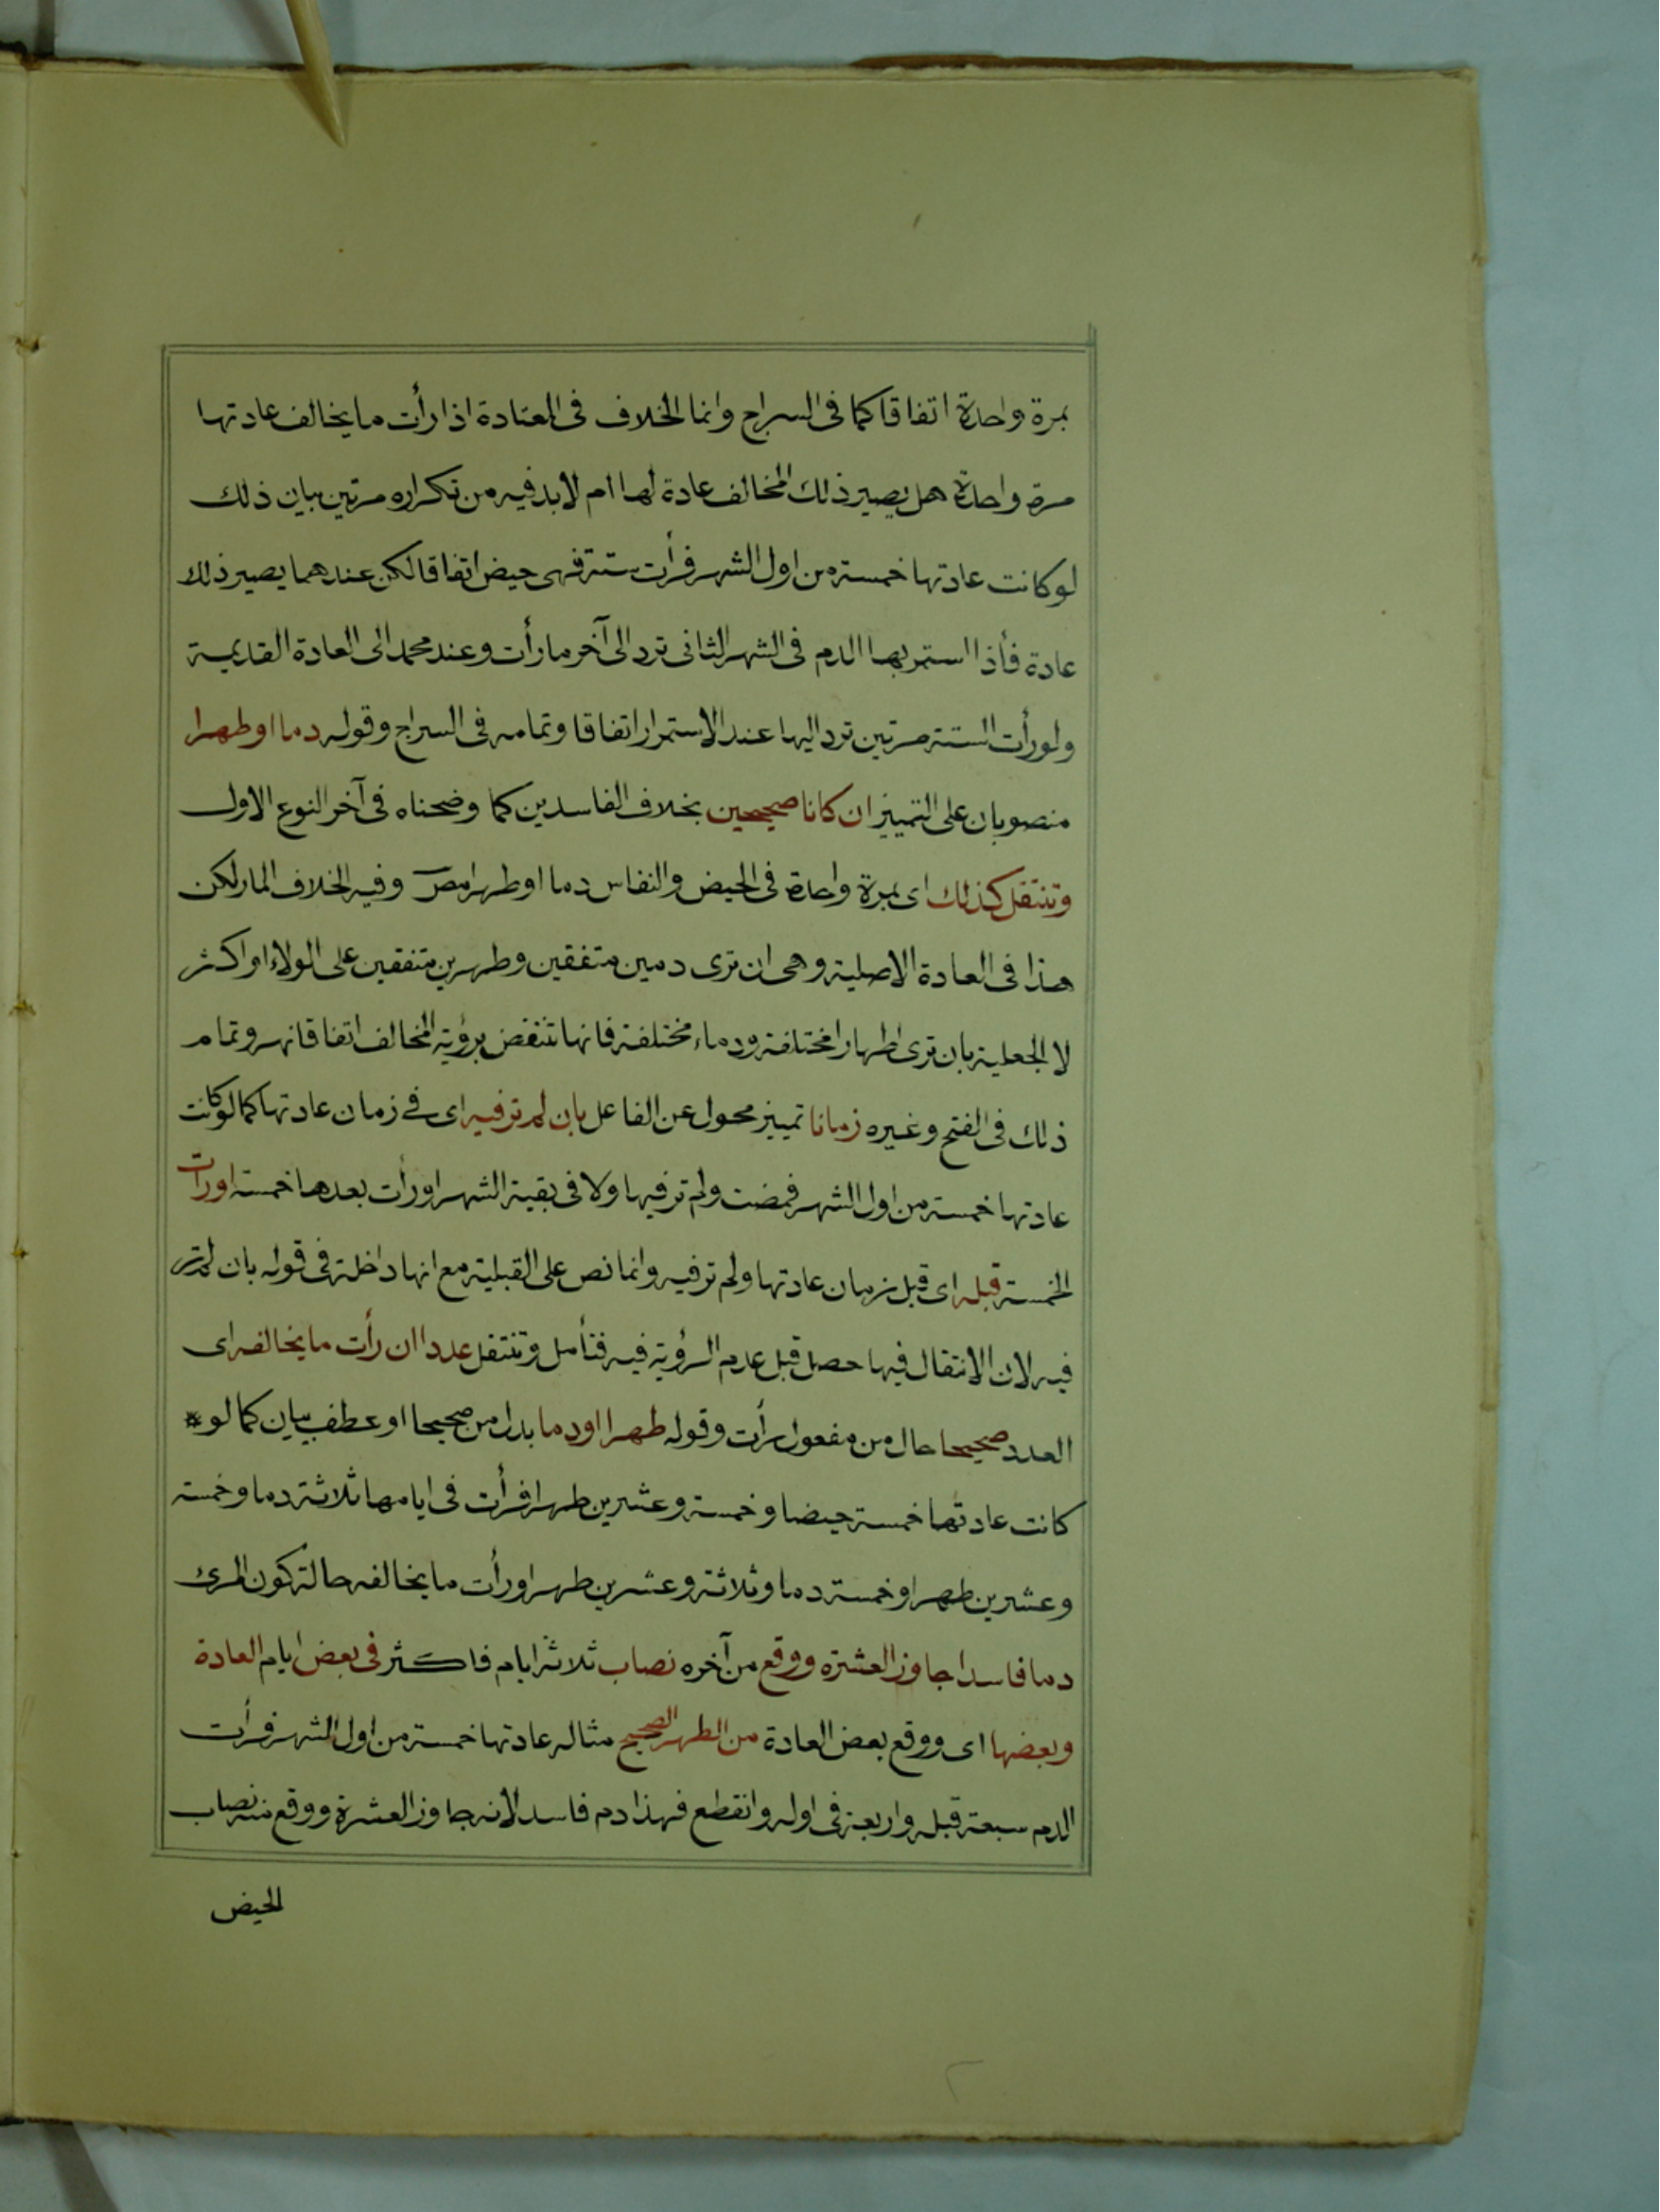 بمرة واحدة اتفاقا كما فى السراج وانما الخلاف فى المعتادة اذا رأت ما يخالف عادتها
مرة واحدة هل يصير ذلك المخالف عادة لها ام لا بد فيه من تكراره مرتين بيان ذلك
لو كانت عادتها خمسة من اول الشهر فرأت ستة فهى حيض اتفاقا لكن عندهما يصير ذلك
عادة فأذا استمر بها الدم فى الشهر الثانى ترد الى آخر ما رأت وعند محمد الى العادة القديمة
ولو رأت الستة مرتين ترد اليها عند الاستمرار اتفاقا وتمامه فى السراج وقوله دما او طهرا
منصوبان على التمييز ان كانا صحيحين بخلاف الفاسدين كما وضحناه فى آخر النوع الاول
وتنتقل كذلك اى بمرة واحدة فى الحيض والنفاس دما او طهرا مصر وفيه الخلاف المار لكن
هذا فى العادة الاصلية وهى ان ترى دمين متفقين وطهرين متفقين على الولاء او اكثر
لا الجعلية بان ترى اطهارا مختلفة ودماء مختلفة فانها تنتقض برؤية المخالف اتفاقا نهر وتمام
ذلك فى الفتح وغيره زمانا تمييز محول عن الفاعل بان لم تر فيه اى فى زمان عادتها كما لو كانت
عادتها خمسة من اول الشهر فمضت ولم تر فيها ولا فى بقية الشهر او رأت بعدها خمسة او رأت
الخمسة قبله اى قبل زمان عادتها ولم تر فيه وانما نص على القبلية مع انها داخلة فى قوله بان لم تر
فيه لان الانتقال فيها حصل قبل عدم الرؤية فيه فتأمل وتنتقل عددا ان رأت ما يخالفه اى
العدد صحيحا حال من مفعول رأت وقوله طهرا او دما بدل من صحيحا او عطف بيان كما لو *
كانت عادتها خمسة حيضا وخمسة وعشرين طهرا فرأت فى ايامها ثلاثة دما وخمسة
وعشرين طهرا او خمسة دما وثلاثة وعشرين طهرا او رأت ما يخالفه حالة كون المرئ
دما فاسدا جاوز العشرة ووقع من آخره نصاب ثلاثة ايام فاكثر فى بعض ايام العادة
وبعضها اى ووقع بعض العادة من الطهر الصحيح مثاله عادتها خمسة من اول الشهر فرأت
الدم سبعة قبله واربعة فى اوله وانقطع فهذا دم فاسد لانه جاوز العشرة ووقع منه نصاب
الحيض